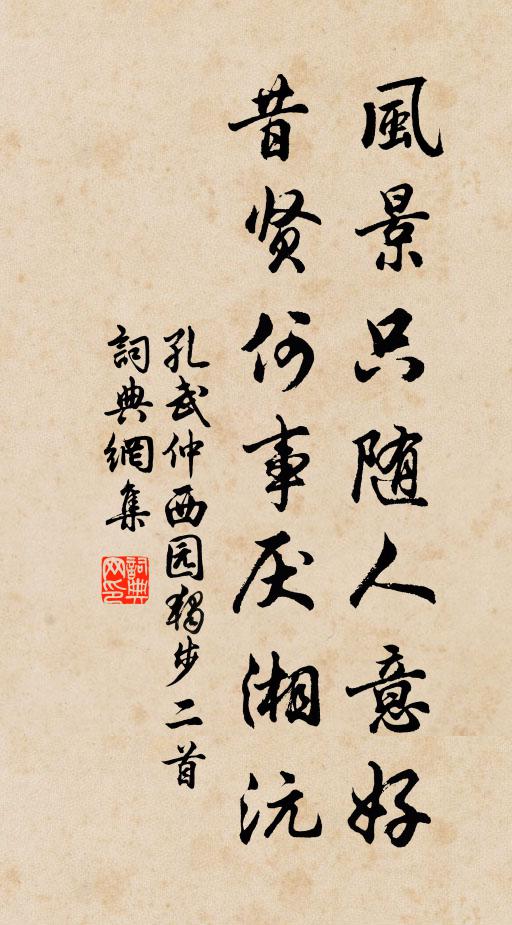 風景只随人意好
昔贤何事厌湘沅
孔武仲西园獨步二首
詞典網集
詞典网印